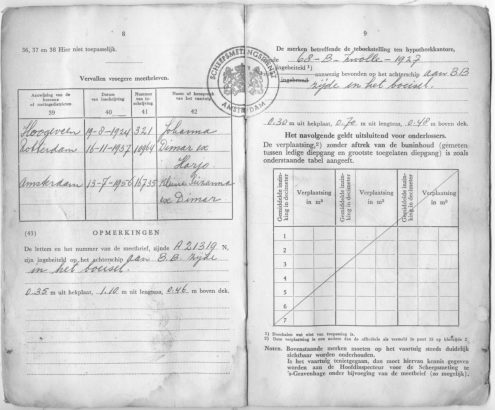 8
36, 37 en 38 Hier niet toepasselijk.
Vervallen vroegere meetbrieven.
Aanwijzing van de bureaux of meetingsdiensten
Datum van inschrijving
Nummer van inschrijving
Naam of kenspreuk van het vaartuig
39 40 41 42
Hoogeveen 19-8-1924 321 Johanna
Rotterdam 16-11-1937 10964 Dimar ex
Harjo
Amsterdam 13-7-1956 16735 Klaine Suzanna
ex Dimar
(43) OPMERKINGEN
De letters en het nummer van de meetbrief, zijnde A 21319 N,
zijn ingebeiteld op het achterschip aan B.B. zijde
in het boeisel.
0.35 m uit hekplaat, 1.10 m uit lengteas, 0.46 m boven dek.
SCHEEPSMETINGSDIENST
AMSTERDAM
9
De merken betreffende de teboekstelling ten hypotheekkantore,
68-B-Zwolle-1927
ingebeiteld ¹)
ingebrand
aanwezig bevonden op het achterschip aan B.B
zijde in het boeisel.
0.30 m uit hekplaat, 0.70 m uit lengteas, 0.48 m boven dek.
Het navolgende geldt uitsluitend voor onderlossers.
De verplaatsing,²) zonder aftrek van de buninhoud (gemeten
tussen ledige diepgang en grootste toegelaten diepgang) is zoals
onderstaande tabel aangeeft.
Gemiddelde inzinking in decimeter
Verplaatsing in m³
Gemiddelde inzinking in decimeter
Verplaatsing in m³
Gemiddelde inzinking in decimeter
Verplaatsing in m³
1
2
3
4
5
6
7
¹) Doorhalen wat niet van toepassing is.
²) Deze verplaatsing is een andere dan de officiële als vermeld in punt 15 op bladzijde 2.
Noten: Bovenstaande merken moeten op het vaartuig steeds duidelijk
zichtbaar worden onderhouden.
Is het vaartuig tenietgegaan, dan moet hiervan kennis gegeven
worden aan de Hoofdinspecteur voor de Scheepsmeting te
's-Gravenhage onder bijvoeging van de meetbrief (zo mogelijk).